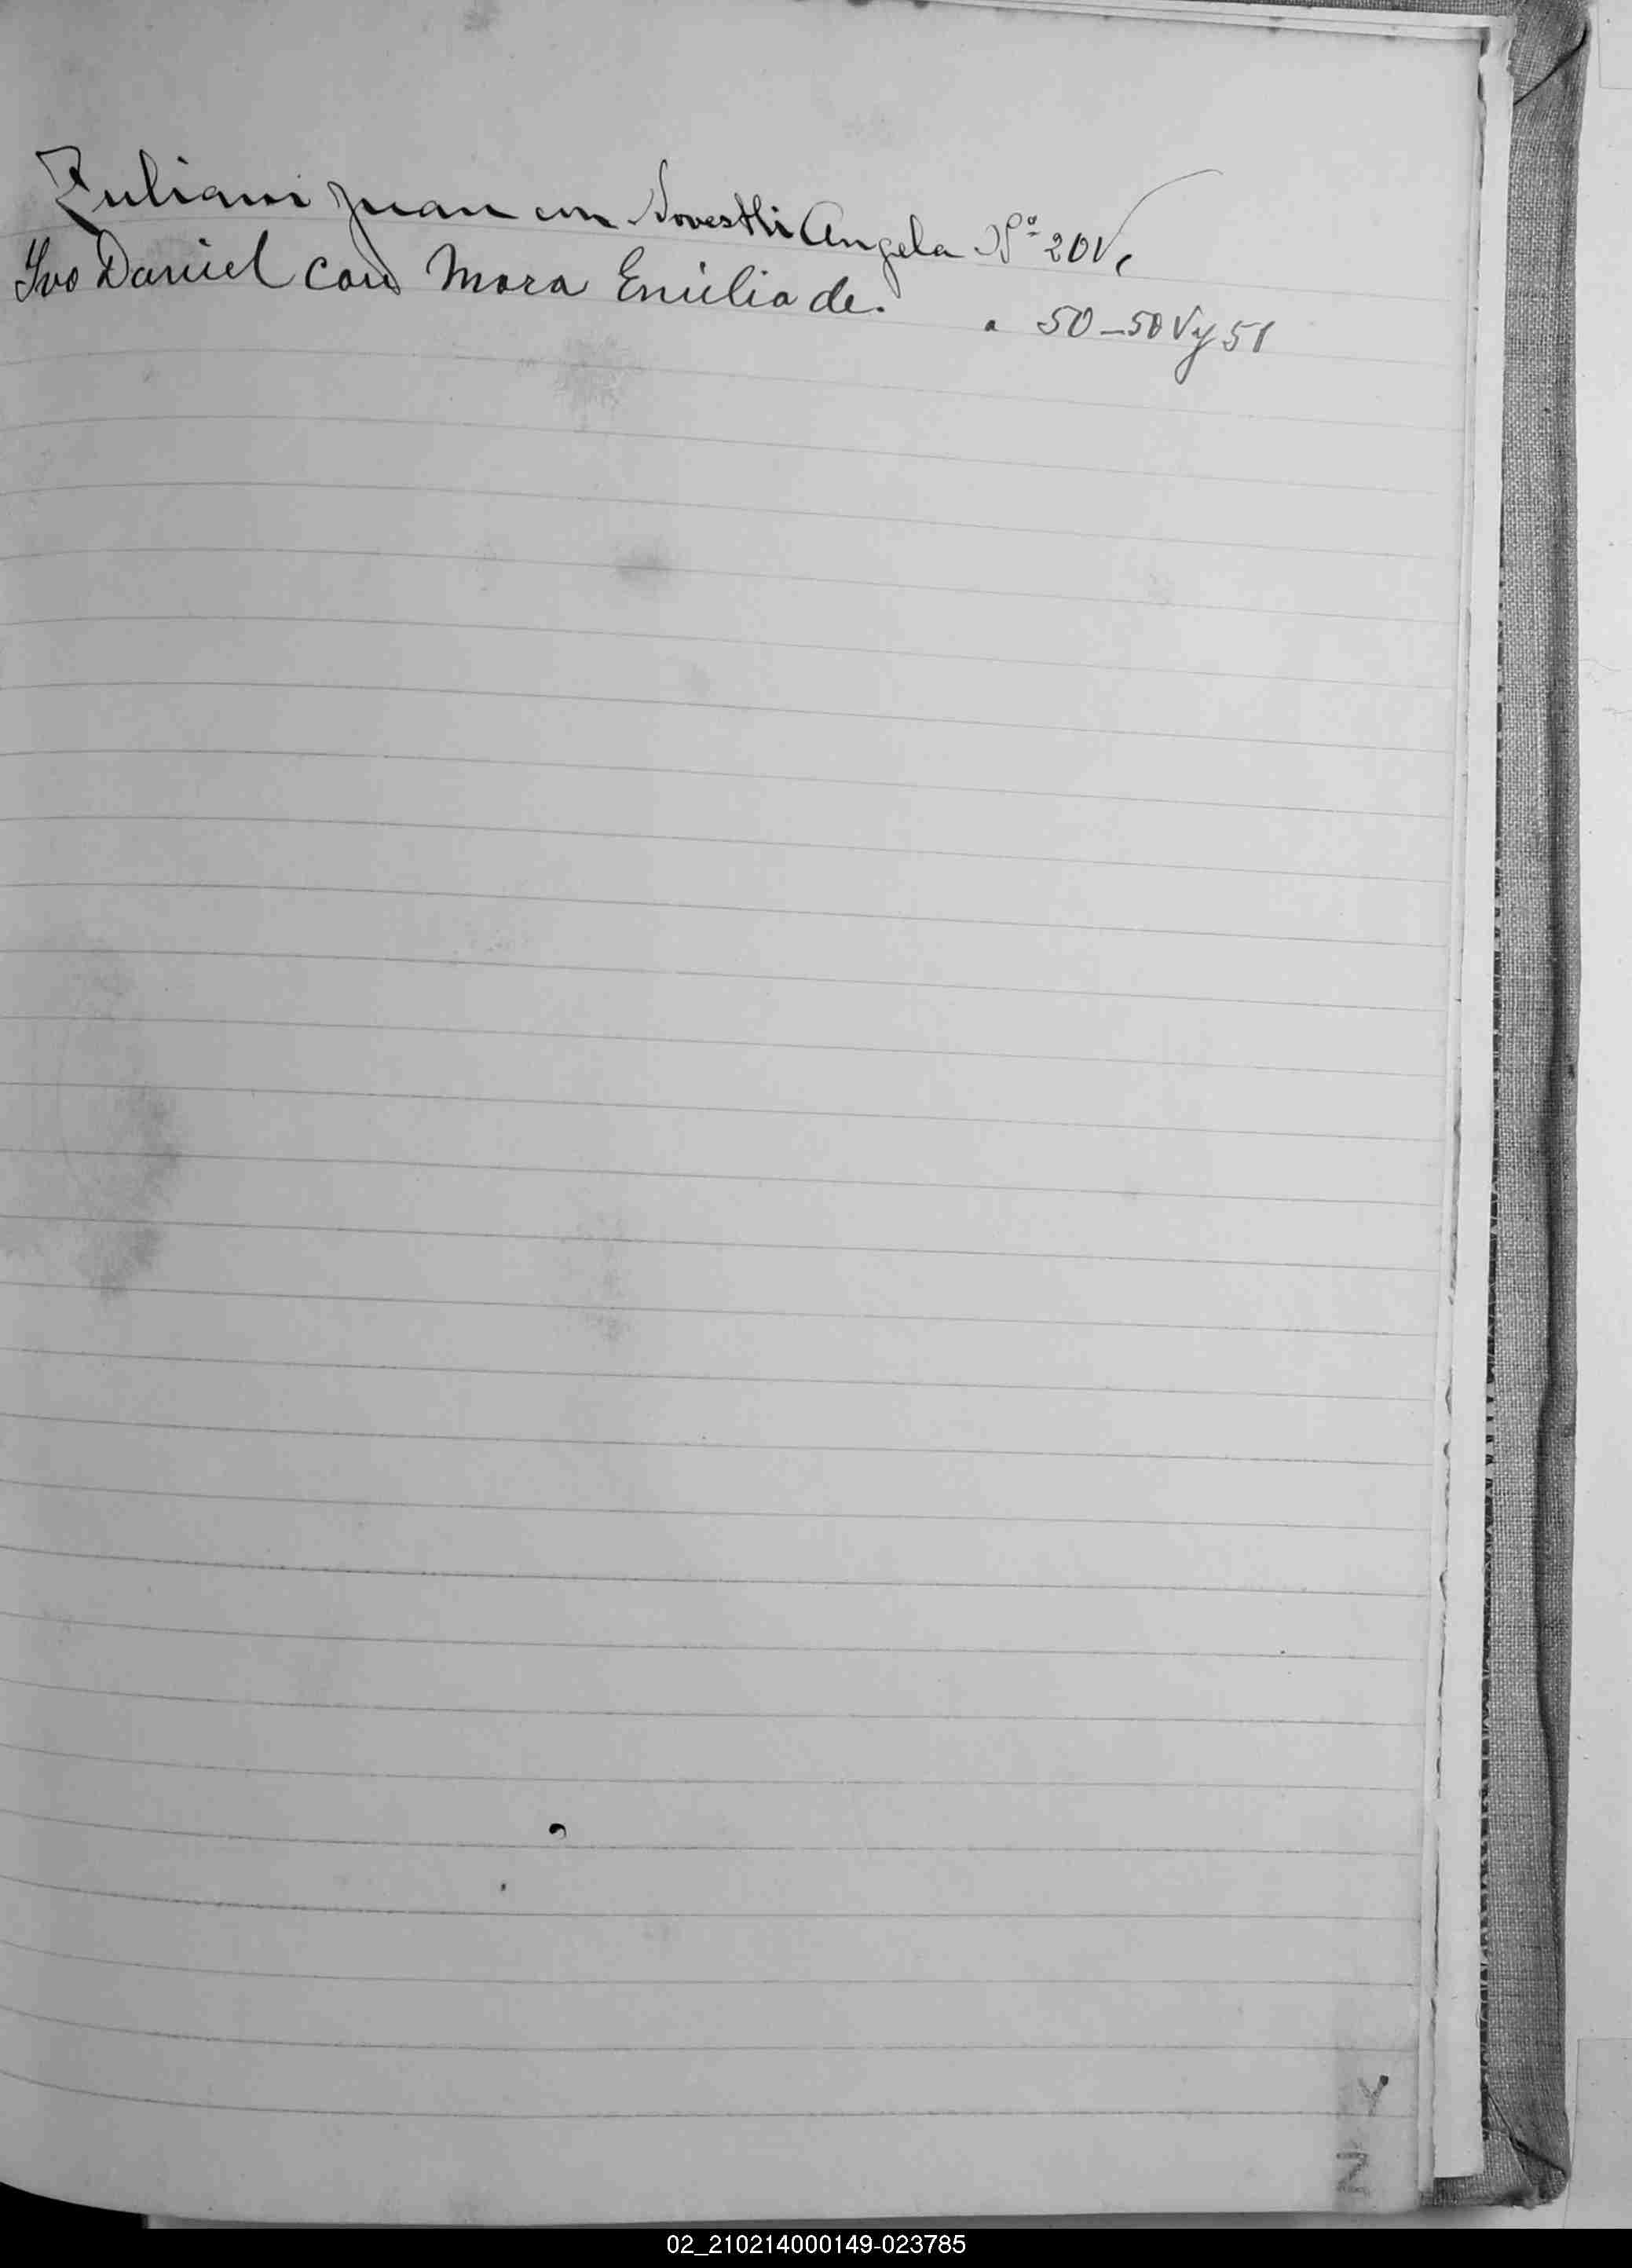 Zuliani Juan con Novestti Angela Nº 20V,
Yvo Daniel con Mora Emilia de. " 50-50Vy51
Y
Z
02_210214000149-023785